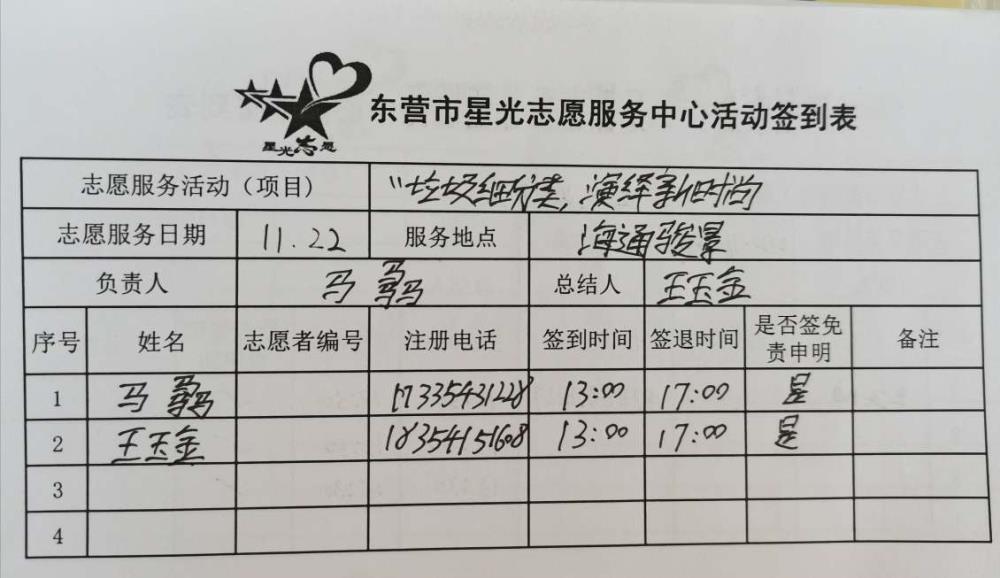 星光志愿
东营市星光志愿服务中心活动签到表
志愿服务活动（项目） “垃圾细分类，演绎新时尚
志愿服务日期 11.22 服务地点 海通骏景
负责人 马骉 总结人 王玉金
序号 姓名 志愿者编号 注册电话 签到时间 签退时间 是否签免责申明 备注
1 马骉 17335431228 13:00 17:00 是
2 王玉金 18354151608 13:00 17:00 是
3
4